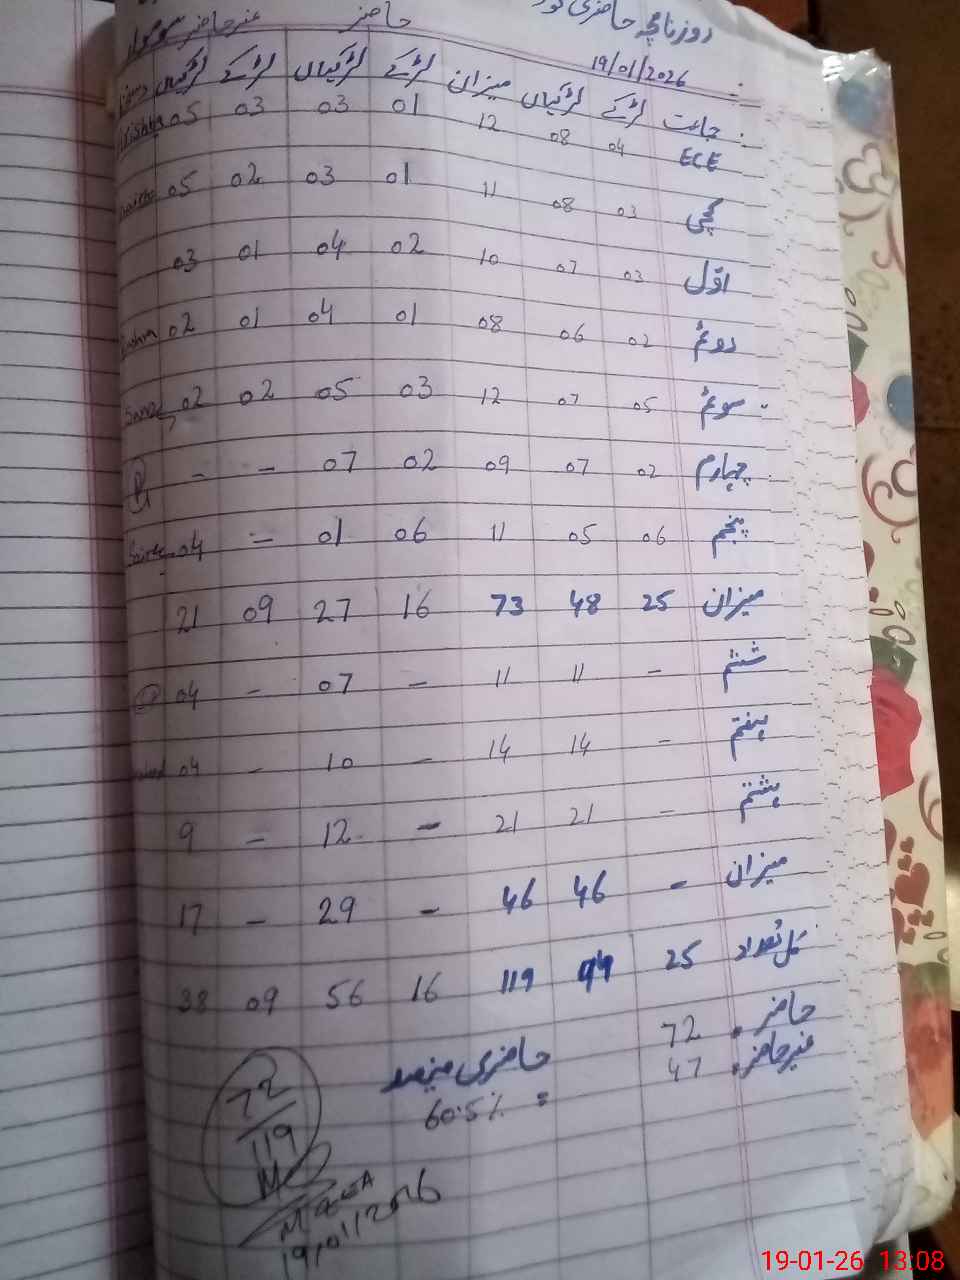 روزنامچہ حاضری
حاضر غیر حاضر سوموار
19/01/2026
جماعت لڑکے لڑکیاں میزان لڑکے لڑکیاں لڑکے لڑکیاں
ECE 04 08 12 01 03 03 05
کچی 03 08 11 01 03 02 05
اوّل 03 07 10 02 04 01 03
دوئم 02 06 08 01 04 01 02
سوئم 05 07 12 03 05 02 02
چہارم 02 07 09 02 07 - -
پنجم 06 05 11 06 01 - 04
میزان 25 48 73 16 27 09 21
ششم - 11 11 - 07 - 04
ہفتم - 14 14 - 10 - 04
ہشتم - 21 21 - 12 - 9
میزان - 46 46 - 29 - 17
کل تعداد 25 94 119 16 56 09 38
حاضر 72
غیر حاضر 47
حاضری فیصد
= 60.5%
72
119
19/01/2026
19-01-26 13:08